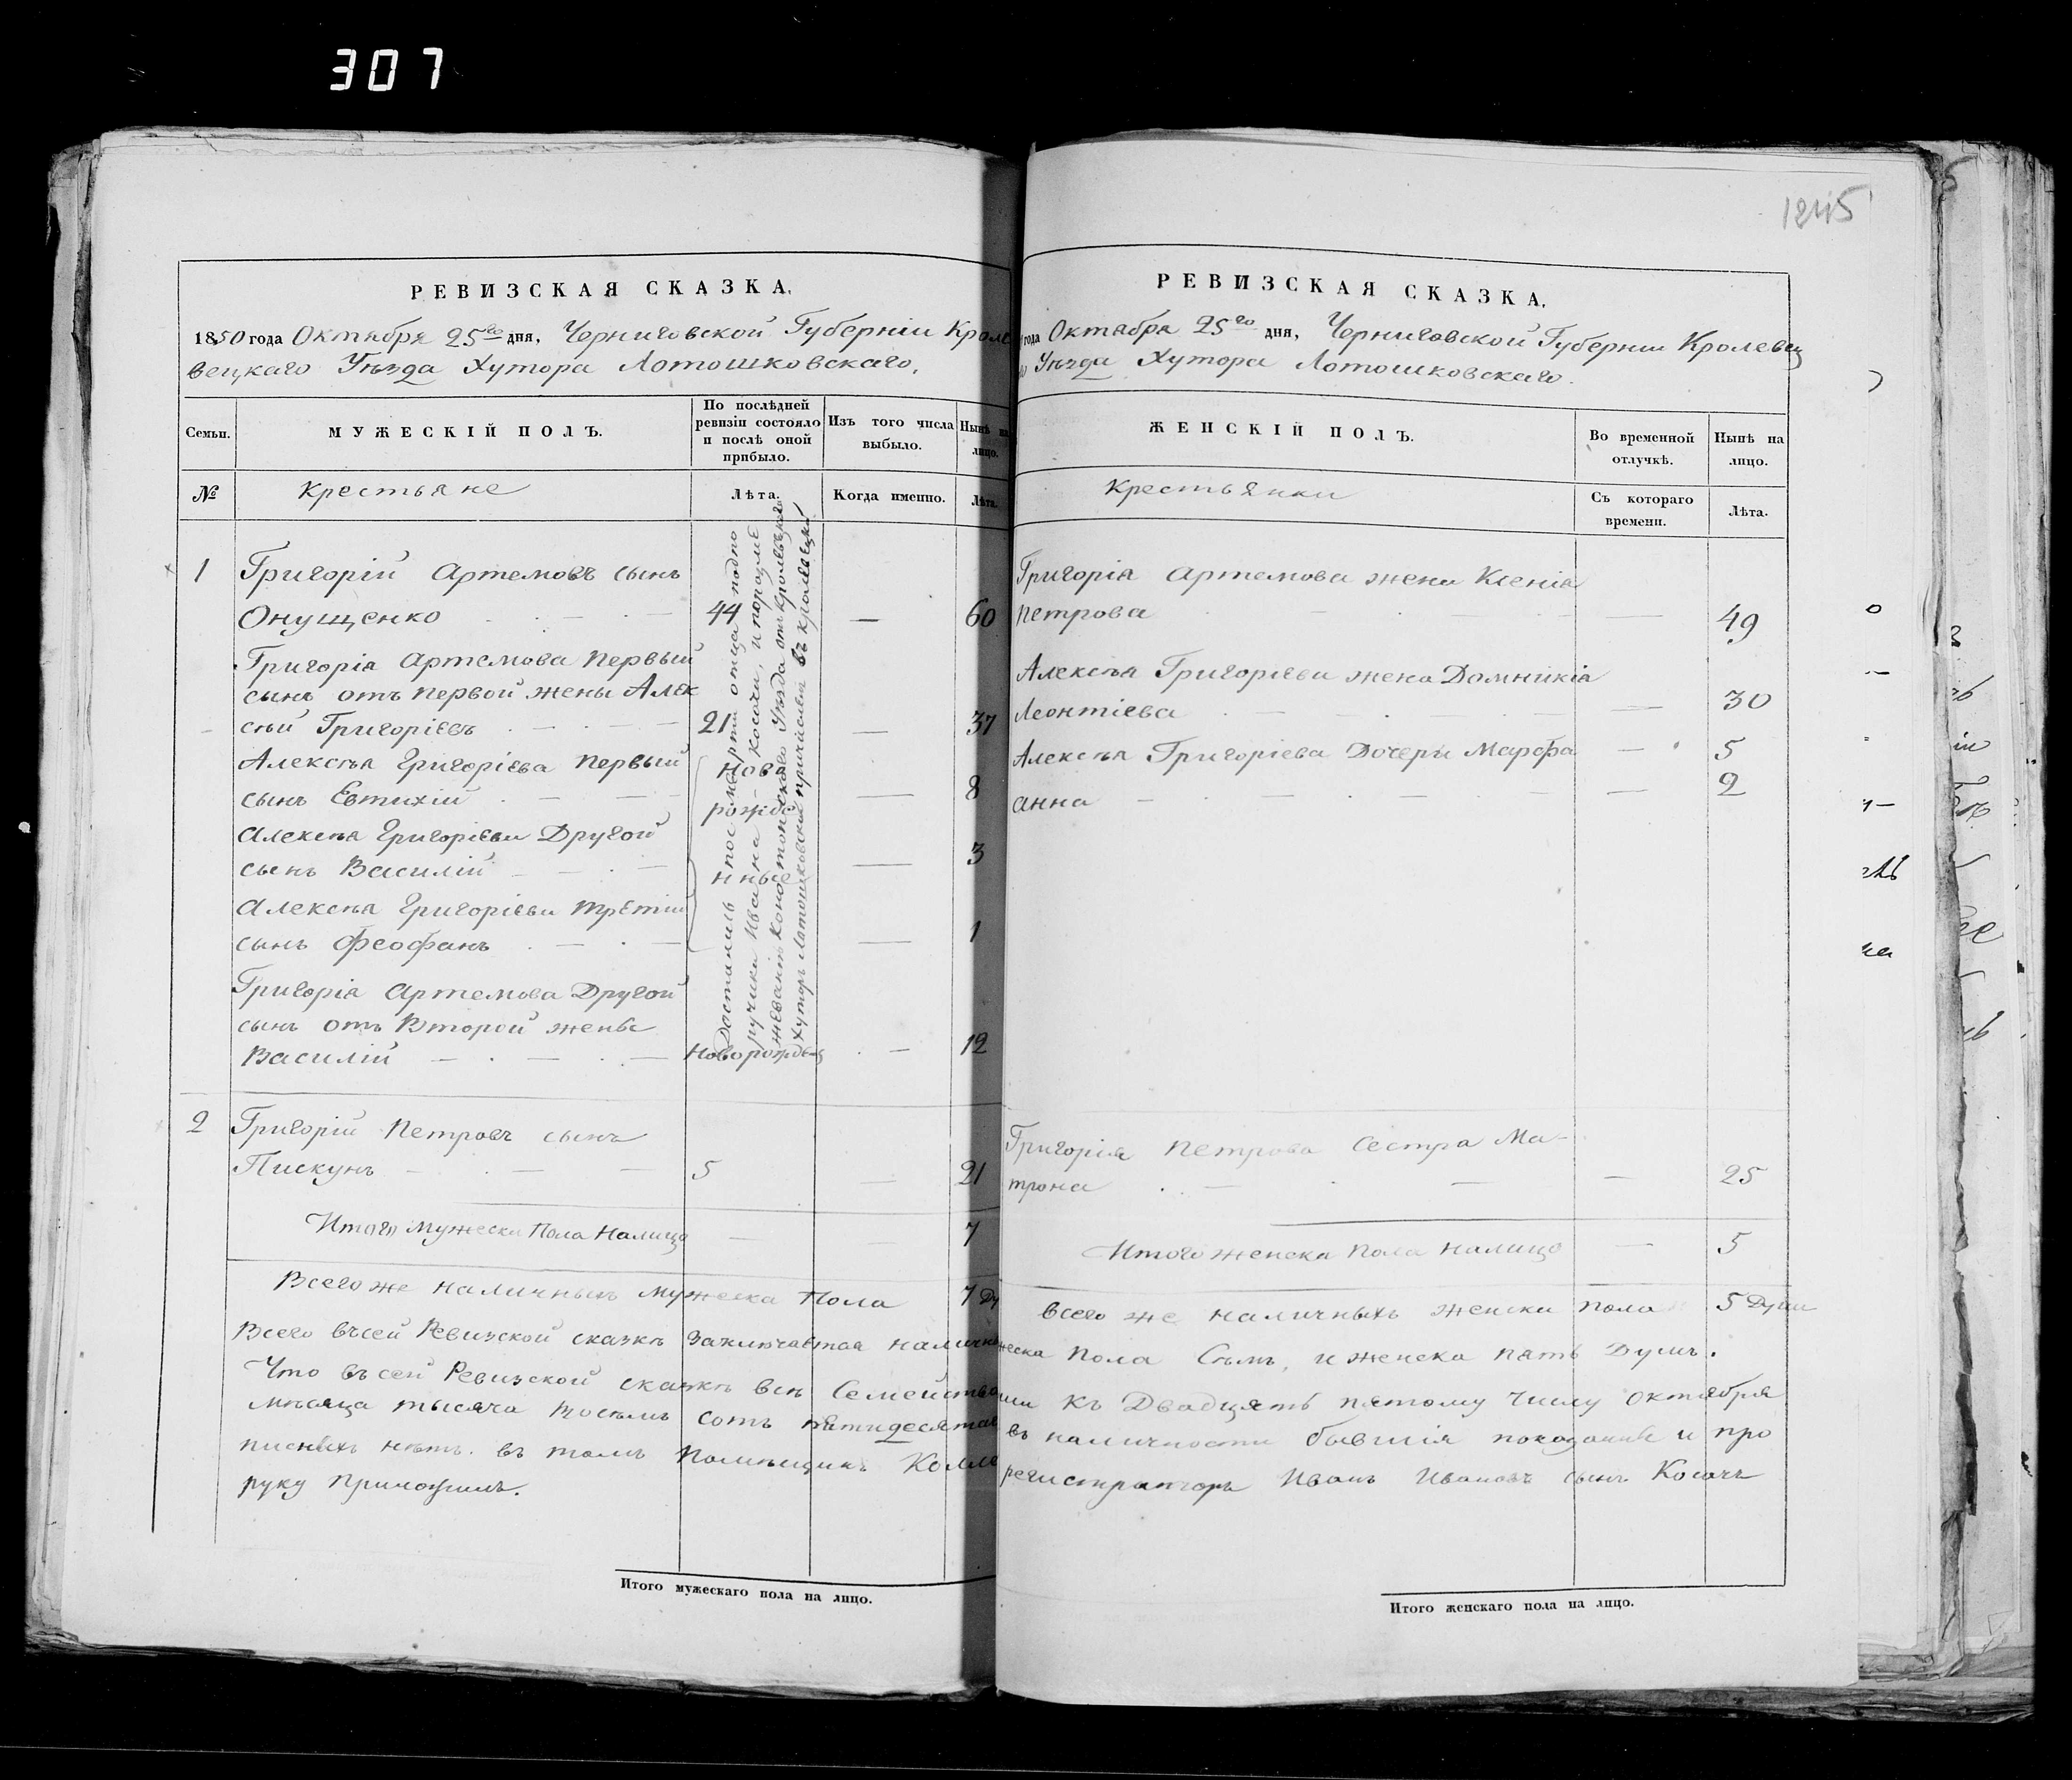 307
1245
РЕВИЗСКАЯ СКАЗКА.
1850 года Октября 25го дня, Черниговской Губерніи Кроле
вецкаго Уѣзда Хутора Лотошковскаго,
Семьи.
МУЖЕСКІЙ ПОЛЪ.
По послѣдней ревизіи состояло и послѣ оной прибыло.
Изъ того числа выбыло.
Нынѣ на лицо.
№
Крестьяне
Лѣта.
Когда именно.
Лѣта.
1 Григорій Артемовъ сынъ
Онущенко 44 — 60
Григорія Артемова Первый
сынъ отъ первой жены Алек
сѣй Григоріевъ 21 — 37
Алексѣя Григоріева Первый
сынъ Евтихій — 8
Алексѣя Григоріева Другой
сынъ Василій — 3
Алексѣя Григоріева третій
сынъ Феофанъ — 1
Ново
рожде
нные
Григорія Артемова Другой
сынъ отъ Второй жены
Василій Новорожден — 12
Достались после смерти отца подпо
ручика Ивана Косачи, и
Конотопскаго Уѣзда въ Кролевецкій
Хуторъ Лотошковский причислены въ Кролевецкій
2 Григорій Петровъ сынъ
Пискунъ 5 — 21
Итого мужеска Пола налицо — — 7
Всего же наличныхъ мужеска пола 7 Ду
Всего въ сей Ревизской сказкѣ Заключается налично
Что въ сей Ревизской сказкѣ всѣ Семейства
мѣсяца тысяча Восемь сотъ пятидесятаго
писныхъ нѣтъ. въ томъ Помѣщикъ Колле
руку Приложилъ.
Итого мужескаго пола на лицо.
РЕВИЗСКАЯ СКАЗКА.
года Октября 25го дня, Черниговской Губерніи Кролевец
Уѣзда Хутора Лотошковскаго.
ЖЕНСКІЙ ПОЛЪ.
Во временной отлучкѣ.
Нынѣ на лицо.
Крестьянки
Съ котораго времени.
Лѣта.
Григорія Артемова жена Ксенія
Петрова — 49
Алексѣя Григоріева жена Домникія
Леонтіева — 30
Алексѣя Григоріева Дочери Марфа — 5
анна — 2
Григорія Петрова Сестра Ма-
трона — 25
Итого женска пола налицо — 5
Всего же наличныхъ женска пола 5 Душ
жеска Пола Семь, и женска пять Душъ.
къ Двадцять пятому числу октября
въ наличности бывшія показаніе и про
регистраторъ Иванъ Ивановъ сынъ Косачъ
Итого женскаго пола на лицо.